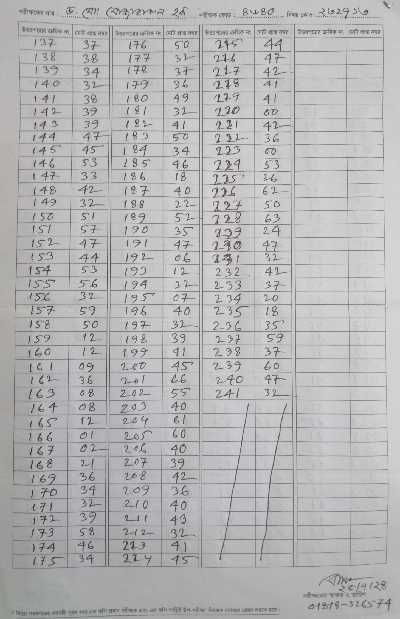 পরীক্ষকের নাম ড. মোঃ
উত্তরপত্রের ক্রমিক নং মোট প্রাপ্ত নম্বর উত্তরপত্রের ক্রমিক নং মোট প্রাপ্ত নম্বর উত্তরপত্রের ক্রমিক নং মোট প্রাপ্ত নম্বর উত্তরপত্রের ক্রমিক নং মোট প্রাপ্ত নম্বর
137 37 176 50 215 44
138 38 177 32 216 47
139 34 178 37 217 42
140 32 179 36 218 41
141 38 180 49 219 41
142 39 181 32 220 00
143 39 182 41 221 42
144 47 183 50 222 36
145 45 184 34 223 00
146 53 185 46 224 53
147 33 186 18 225 26
148 42 187 40 226 62
149 32 188 22 227 50
150 51 189 52 228 63
151 57 190 35 229 24
152 47 191 47 230 47
153 44 192 06 231 32
154 53 193 12 232 42
155 56 194 32 233 37
156 32 195 07 234 20
157 59 196 40 235 18
158 50 197 32 236 35
159 12 198 39 237 59
160 12 199 41 238 37
161 09 200 45 239 60
162 36 201 66 240 47
163 08 202 55 241 32
164 08 203 40
165 12 204 61
166 01 205 60
167 02 206 40
168 21 207 39
169 36 208 42
170 34 209 36
171 32 210 40
172 39 211 43
173 58 212 32
174 46 213 41
175 34 214 45
01818-326574